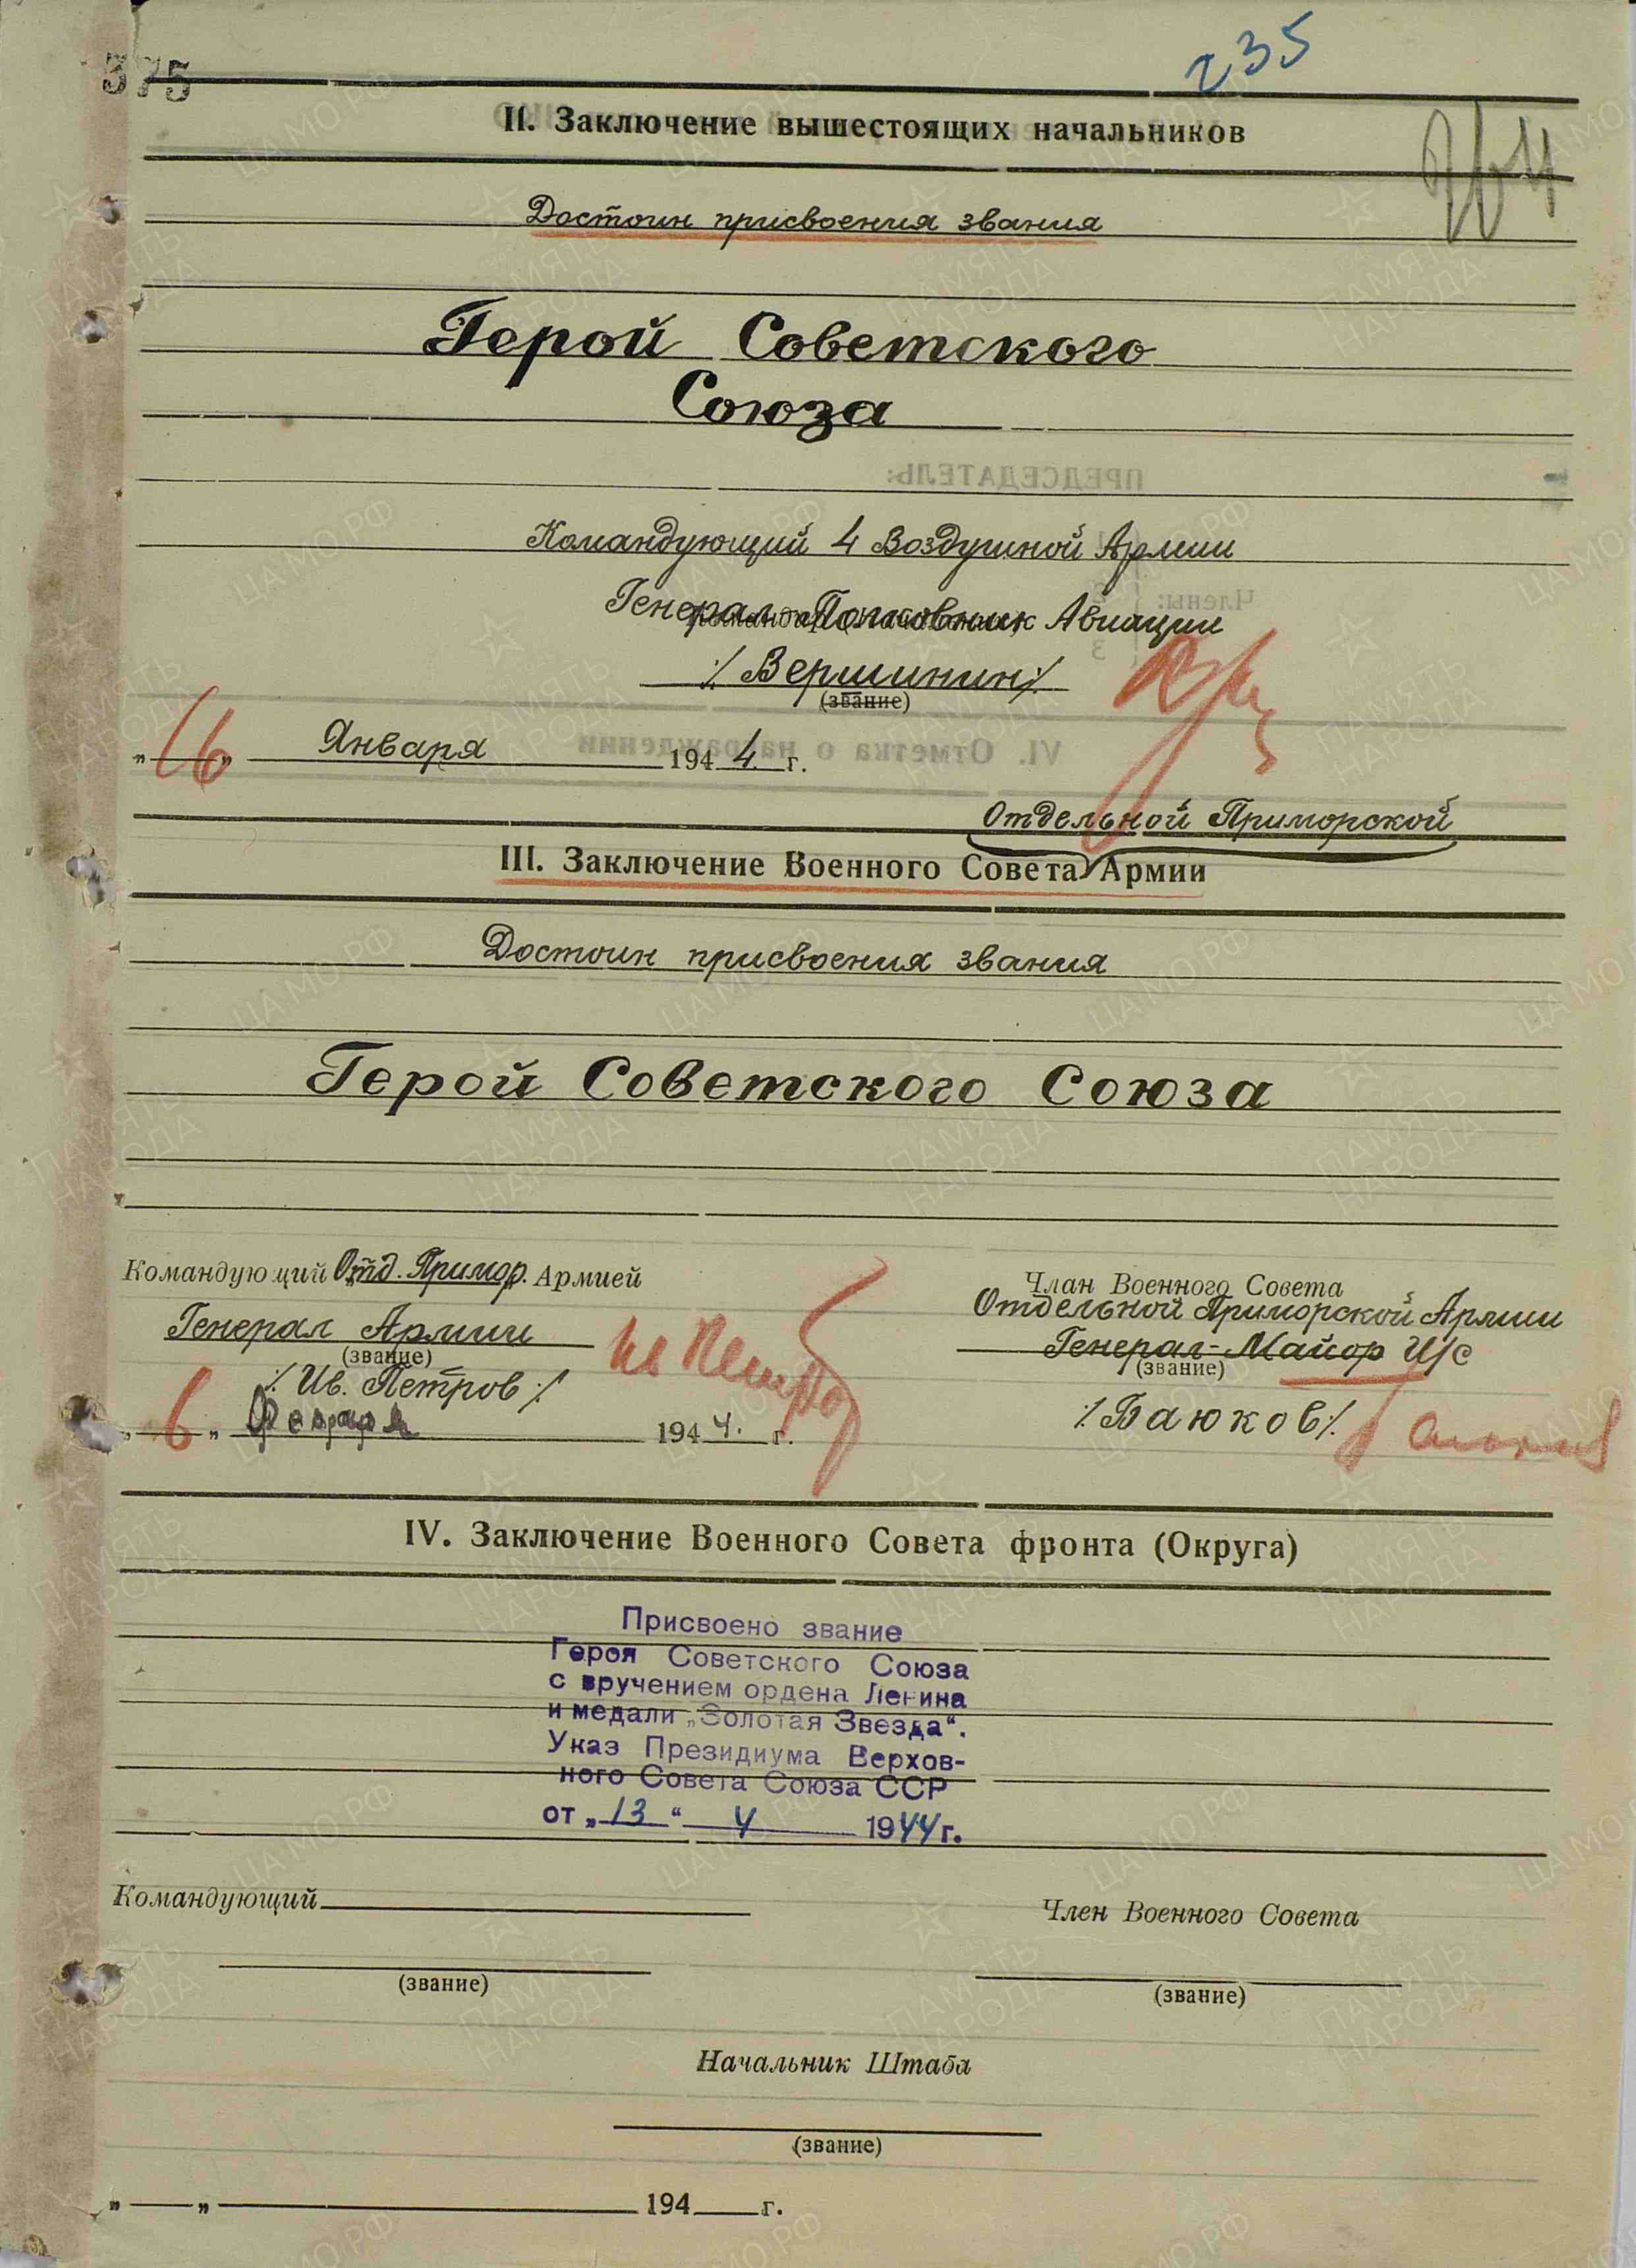 375
235
II. Заключение вышестоящих начальников
Достоин присвоения звания
Герой Советского
Союза
Командующий 4 Воздушной Армии
Генерал-Полковник Авиации
/Вершинин/
(звание)
„16„ Января 1944 г.
Отдельной Приморской
III. Заключение Военного Совета Армии
Достоин присвоения звания
Герой Советского Союза
Командующий Отд. Примор. Армией
Генерал Армии
(звание)
/Ив. Петров/
„6„ Февраля 1944. г.
Член Военного Совета
Отдельной Приморской Армии
Генерал-Майор И/С
(звание)
/Баюков/
IV. Заключение Военного Совета фронта (Округа)
Присвоено звание
Героя Советского Союза
с вручением ордена Ленина
и медали „Золотая Звезда“.
Указ Президиума Верхов-
ного Совета Союза ССР
от „13“ 4 1944г.
Командующий
(звание)
Член Военного Совета
(звание)
Начальник Штаба
(звание)
„ „ 194 г.